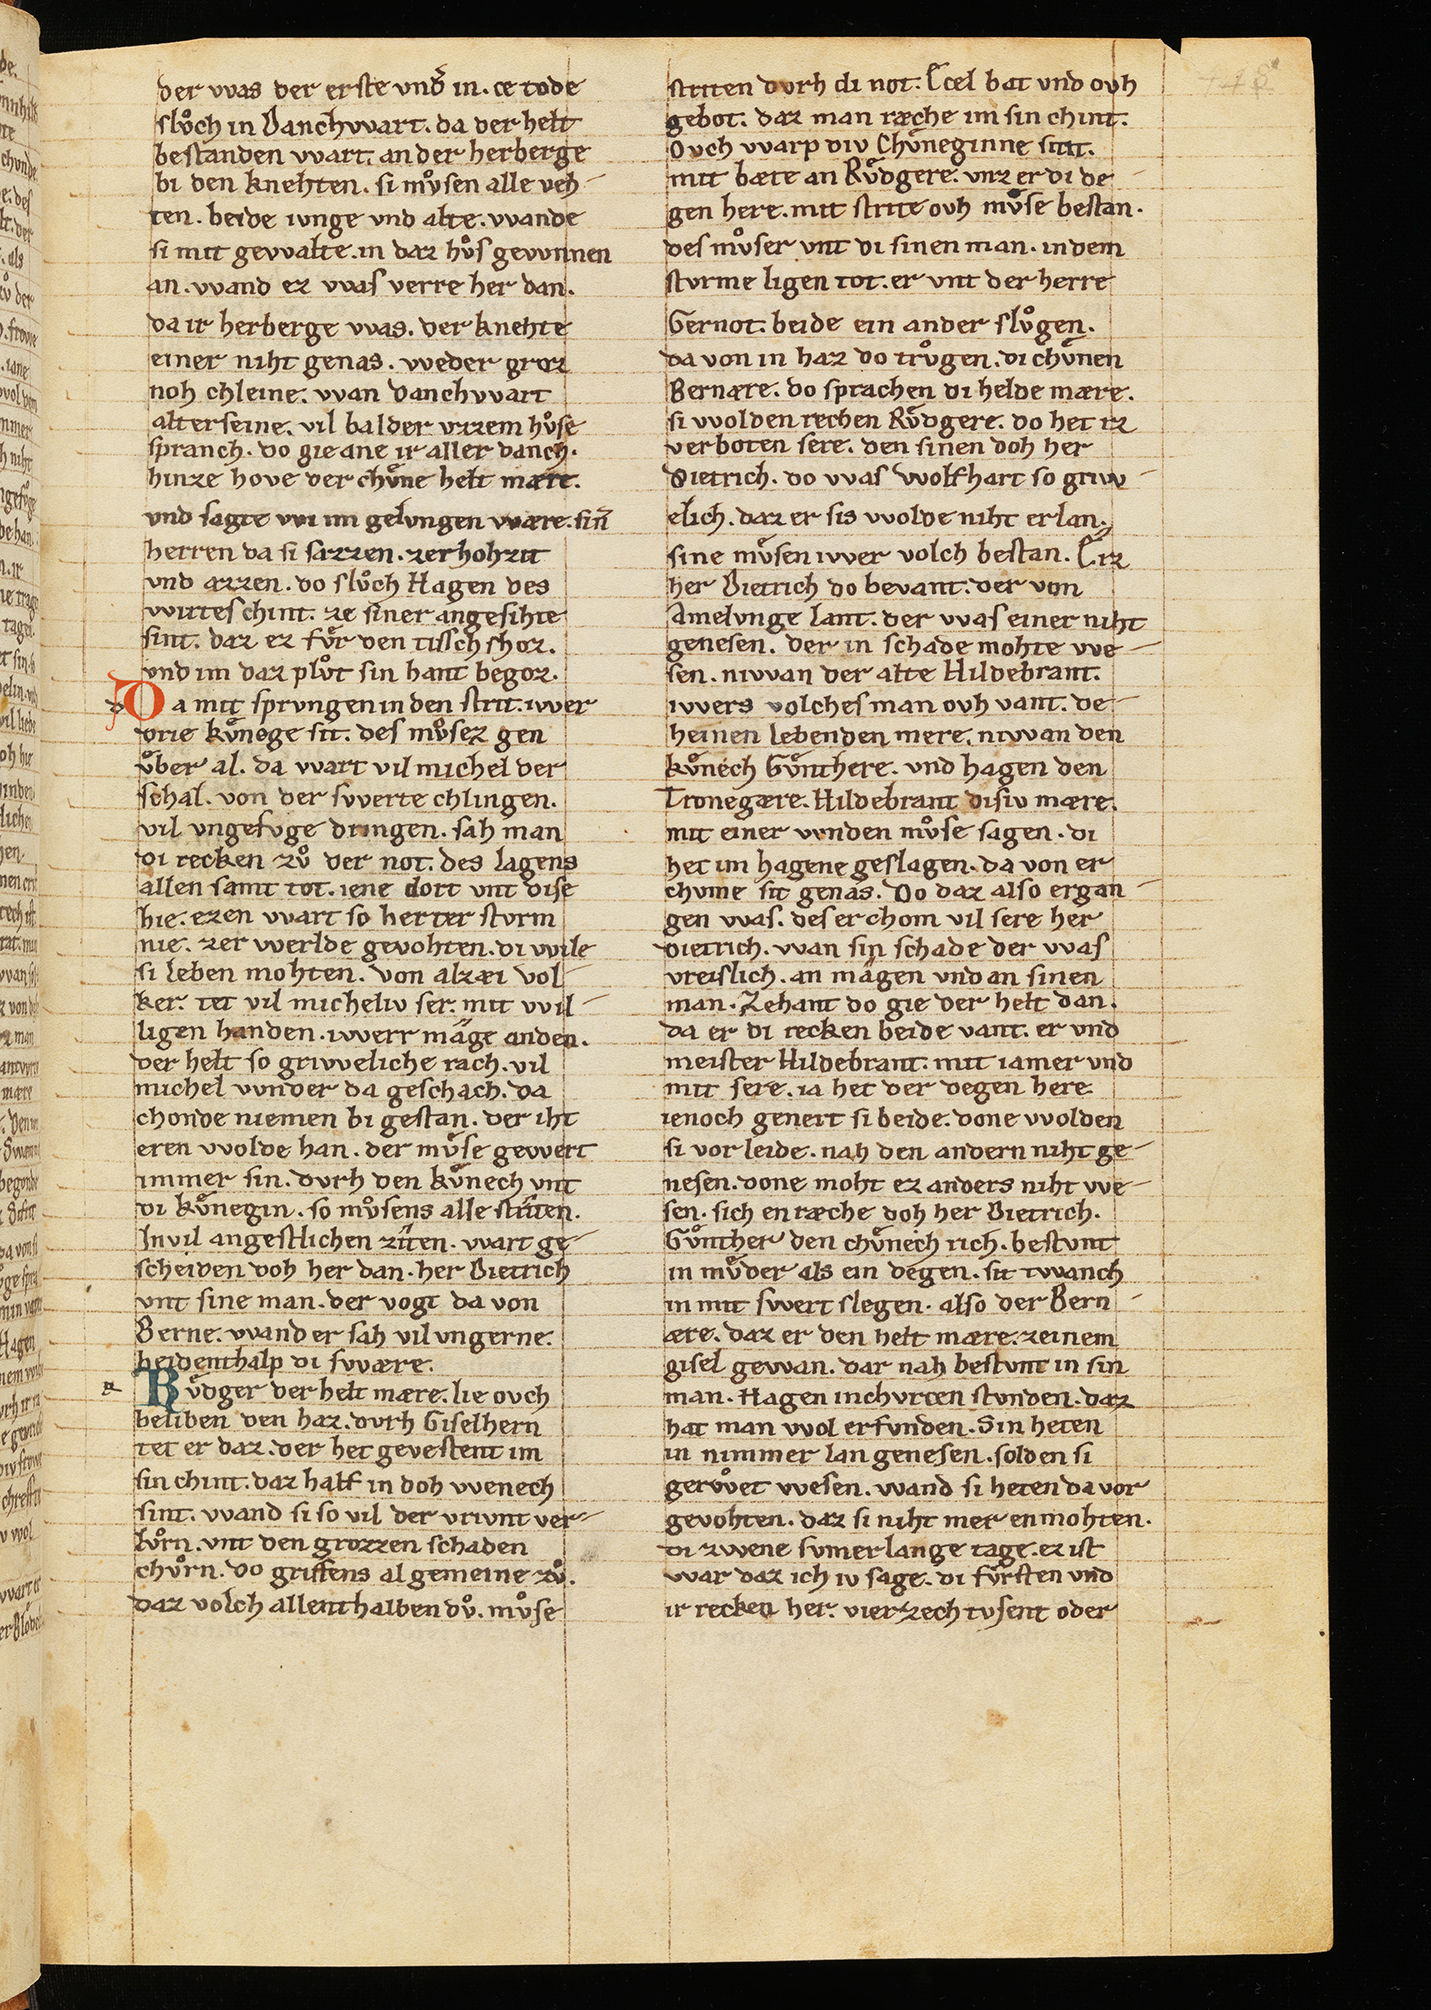 der was der erste vnd͛ in. ce tode
slůch in Danchwart. da der helt
bestanden wart. an der herberge
bi den knehten. si můsen alle veh-
ten. beide ivnge vnd alte. wande
si mit gewalte. in daz hůs gewnnen
an. wand ez was verre her dan.
da ir herberge was. der knehte
einer niht genas. weder groz
noh chleine. wan Danchwart
alterseine. vil balder vzzem hůse
spranch. do gie ane ir aller danch.
hinze hove der chvͤne helt mære.
vnd sagte wi im gelvngen wære. sin̄
herren da si sazzen. zer hohzit
vnd æzzen. do slůch Hagen des
wirtes chint. ze siner angesihte
sint. daz ez fvͤr den tissch shoz.
vnd im daz plůt sin hant begoz.
Da mit sprvngen in den strit. iwer
drie kvͤnege sit. des můsez gen
vͤber al. da wart vil michel der
schal. von der swerte chlingen.
vil vngefvge dringen. sah man
di recken zů der not. des lagens
allen samt tot. iene dort vnt dise
hie. ezen wart so herter stvrm
nie. zer werlde gevohten. di wile
si leben mohten. von alzæi vol-
ker. tet vil micheliv ser. mit wil-
ligen handen. iwerr mâge anden.
der helt so griweliche rach. vil
michel wnder da geschach. da
chonde niemen bi gestan. der iht
eren wolde han. der mvͤse gewert
immer sin. dvrh den kvͤnech vnt
di kvͤnegin. so můsens alle strîten.
In vil angestlichen zîten. wart ge-
scheiden doh her dan. her Dietrich
vnt sine man. der vogt da von
Berne. wand er sah vil vngerne.
beidenthalp di swære.
Rvͤdger der helt mære. lie ovch
beliben den haz. dvrh Giselhern
tet er daz. der het gevestent im
sin chint. daz half in doh wenech
sint. wand si so vil der vrivnt ver-
lůrn. vnt den grozzen schaden
chůrn. do griffens al gemeine zů.
daz volch allenthalben dů. můse
striten dvrh di not. Ecel bat vnd ovh
gebot. daz man ræche im sin chint.
Ovch warp div Chvͤneginne sint.
mit bæte an Rvͤdgere. vnz er di de-
gen here. mit strite ovh mvͤse bestan.
des můser vnt di sinen man. in dem
stvrme ligen tot. er vnt der herre
Gernot. beide ein ander slůgen.
da von in haz do trůgen. di chvͤnen
Bernære. do sprachen di helde mære.
si wolden rechen Rvͤdgere. do het iz
verboten sere. den sinen doh her
Dietrich. do was Wolfhart so griw-
elich. daz er sis wolde niht erlan.
sine mvͤsen iwer volch bestan. Eiz
her Dietrich do bevant. der von
Amelvnge lant. der was einer niht
genesen. der in schade mohte we-
sen. niwan der alte Hildebrant.
iwers volches man ovh vant. de-
heinen lebenden mere. niwan den
kvͤnech Gvͤnthere. vnd hagen den
Tronegære. Hildebrant disiv mære.
mit einer wnden můse sagen. di
het im hagene geslagen. da von er
chvme sit genas. Do daz also ergan-
gen was. des erchom vil sere her
dietrich. wan sin schade der was
vreislich. an mâgen vnd an sinen
man. Zehant do gie der helt dan.
da er di recken beide vant. er vnd
meister Hildebrant. mit iamer vnd
mit sere. ia het der degen here
ienoch genert si beide. done wolden
si vor leide. nah den andern niht ge-
nesen. done moht ez anders niht we-
sen. sich en ræche doh her Dietrich.
Gvͤnther den chvͤnech rich. bestvnt
in mvͤder als ein degen. sit twanch
in mit swert slegen. also der Bern-
ære. daz er den helt mære. zeinem
gisel gewan. dar nah bestvnt in sin
man. Hagen in chvrcen stvnden. daz
hat man wol erfvnden. Sin heten
in nimmer lan genesen. solden si
gerůwet wesen. wand si heten da vor
gevohten. daz si niht mer en mohten.
di zwene svmerlange tage. ez ist
war daz ich iv sage. di fvͤrsten vnd
ir recken her. vierzech tvsent oder